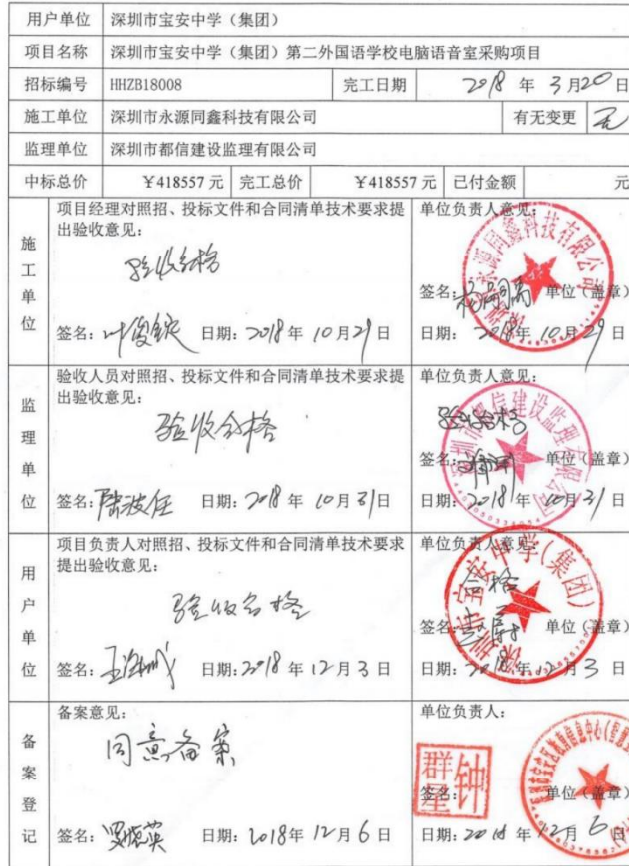 用户单位 深圳市宝安中学（集团）
项目名称 深圳市宝安中学（集团）第二外国语学校电脑语音室采购项目
招标编号 HHZB18008 完工日期 2018 年 3 月 20 日
施工单位 深圳市永源同鑫科技有限公司 有无变更 无
监理单位 深圳市都信建设监理有限公司
中标总价 ￥418557 元 完工总价 ￥418557 元 已付金额 元
施工单位
项目经理对照招、投标文件和合同清单技术要求提
出验收意见：
验收合格
签名： 日期：2018 年 10 月 29 日
单位负责人意见：
永源同鑫科技有限公司
签名： 单位（盖章）
日期： 2018 年 10 月 29 日
监理单位
验收人员对照招、投标文件和合同清单技术要求提
出验收意见：
验收合格
签名： 日期：2018 年 10 月 31 日
单位负责人意见：
验收合格
深圳市都信建设监理有限公司
签名： 单位（盖章）
日期：2018 年 10 月 31 日
用户单位
项目负责人对照招、投标文件和合同清单技术要求
提出验收意见：
验收合格
签名： 日期：2018 年 12 月 3 日
单位负责人意见：
合格
深圳市宝安中学（集团）
签名： 单位（盖章）
日期：2018 年 12 月 3 日
备案登记
备案意见：
同意备案
签名： 日期：2018 年 12 月 6 日
单位负责人：
钟群星
签名： 单位（盖章）
日期：2018 年 12 月 6 日